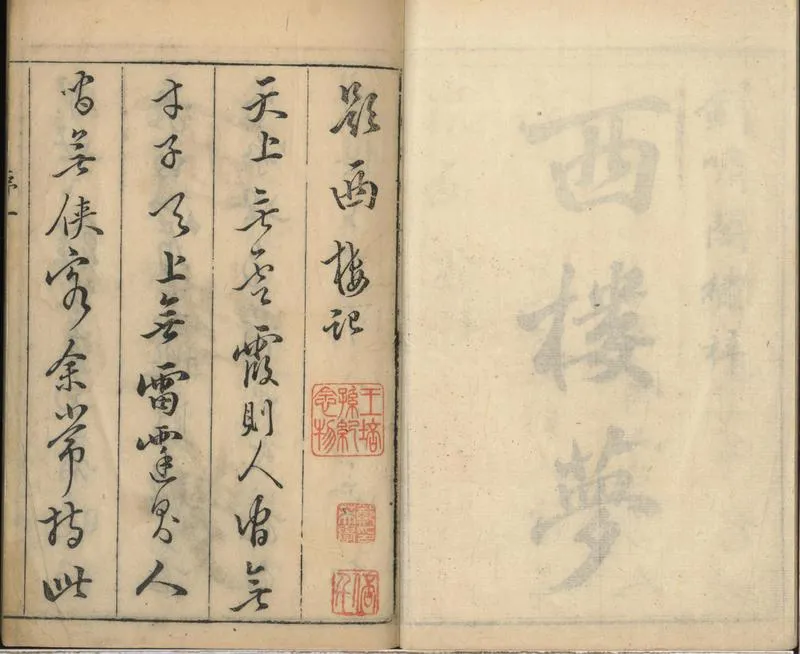 劍嘯閣
西樓夢
題西樓記
王培孫紀念物
天上無雲霞則人間無
才子天上無雷霆則人
間無俠客余嘗持此